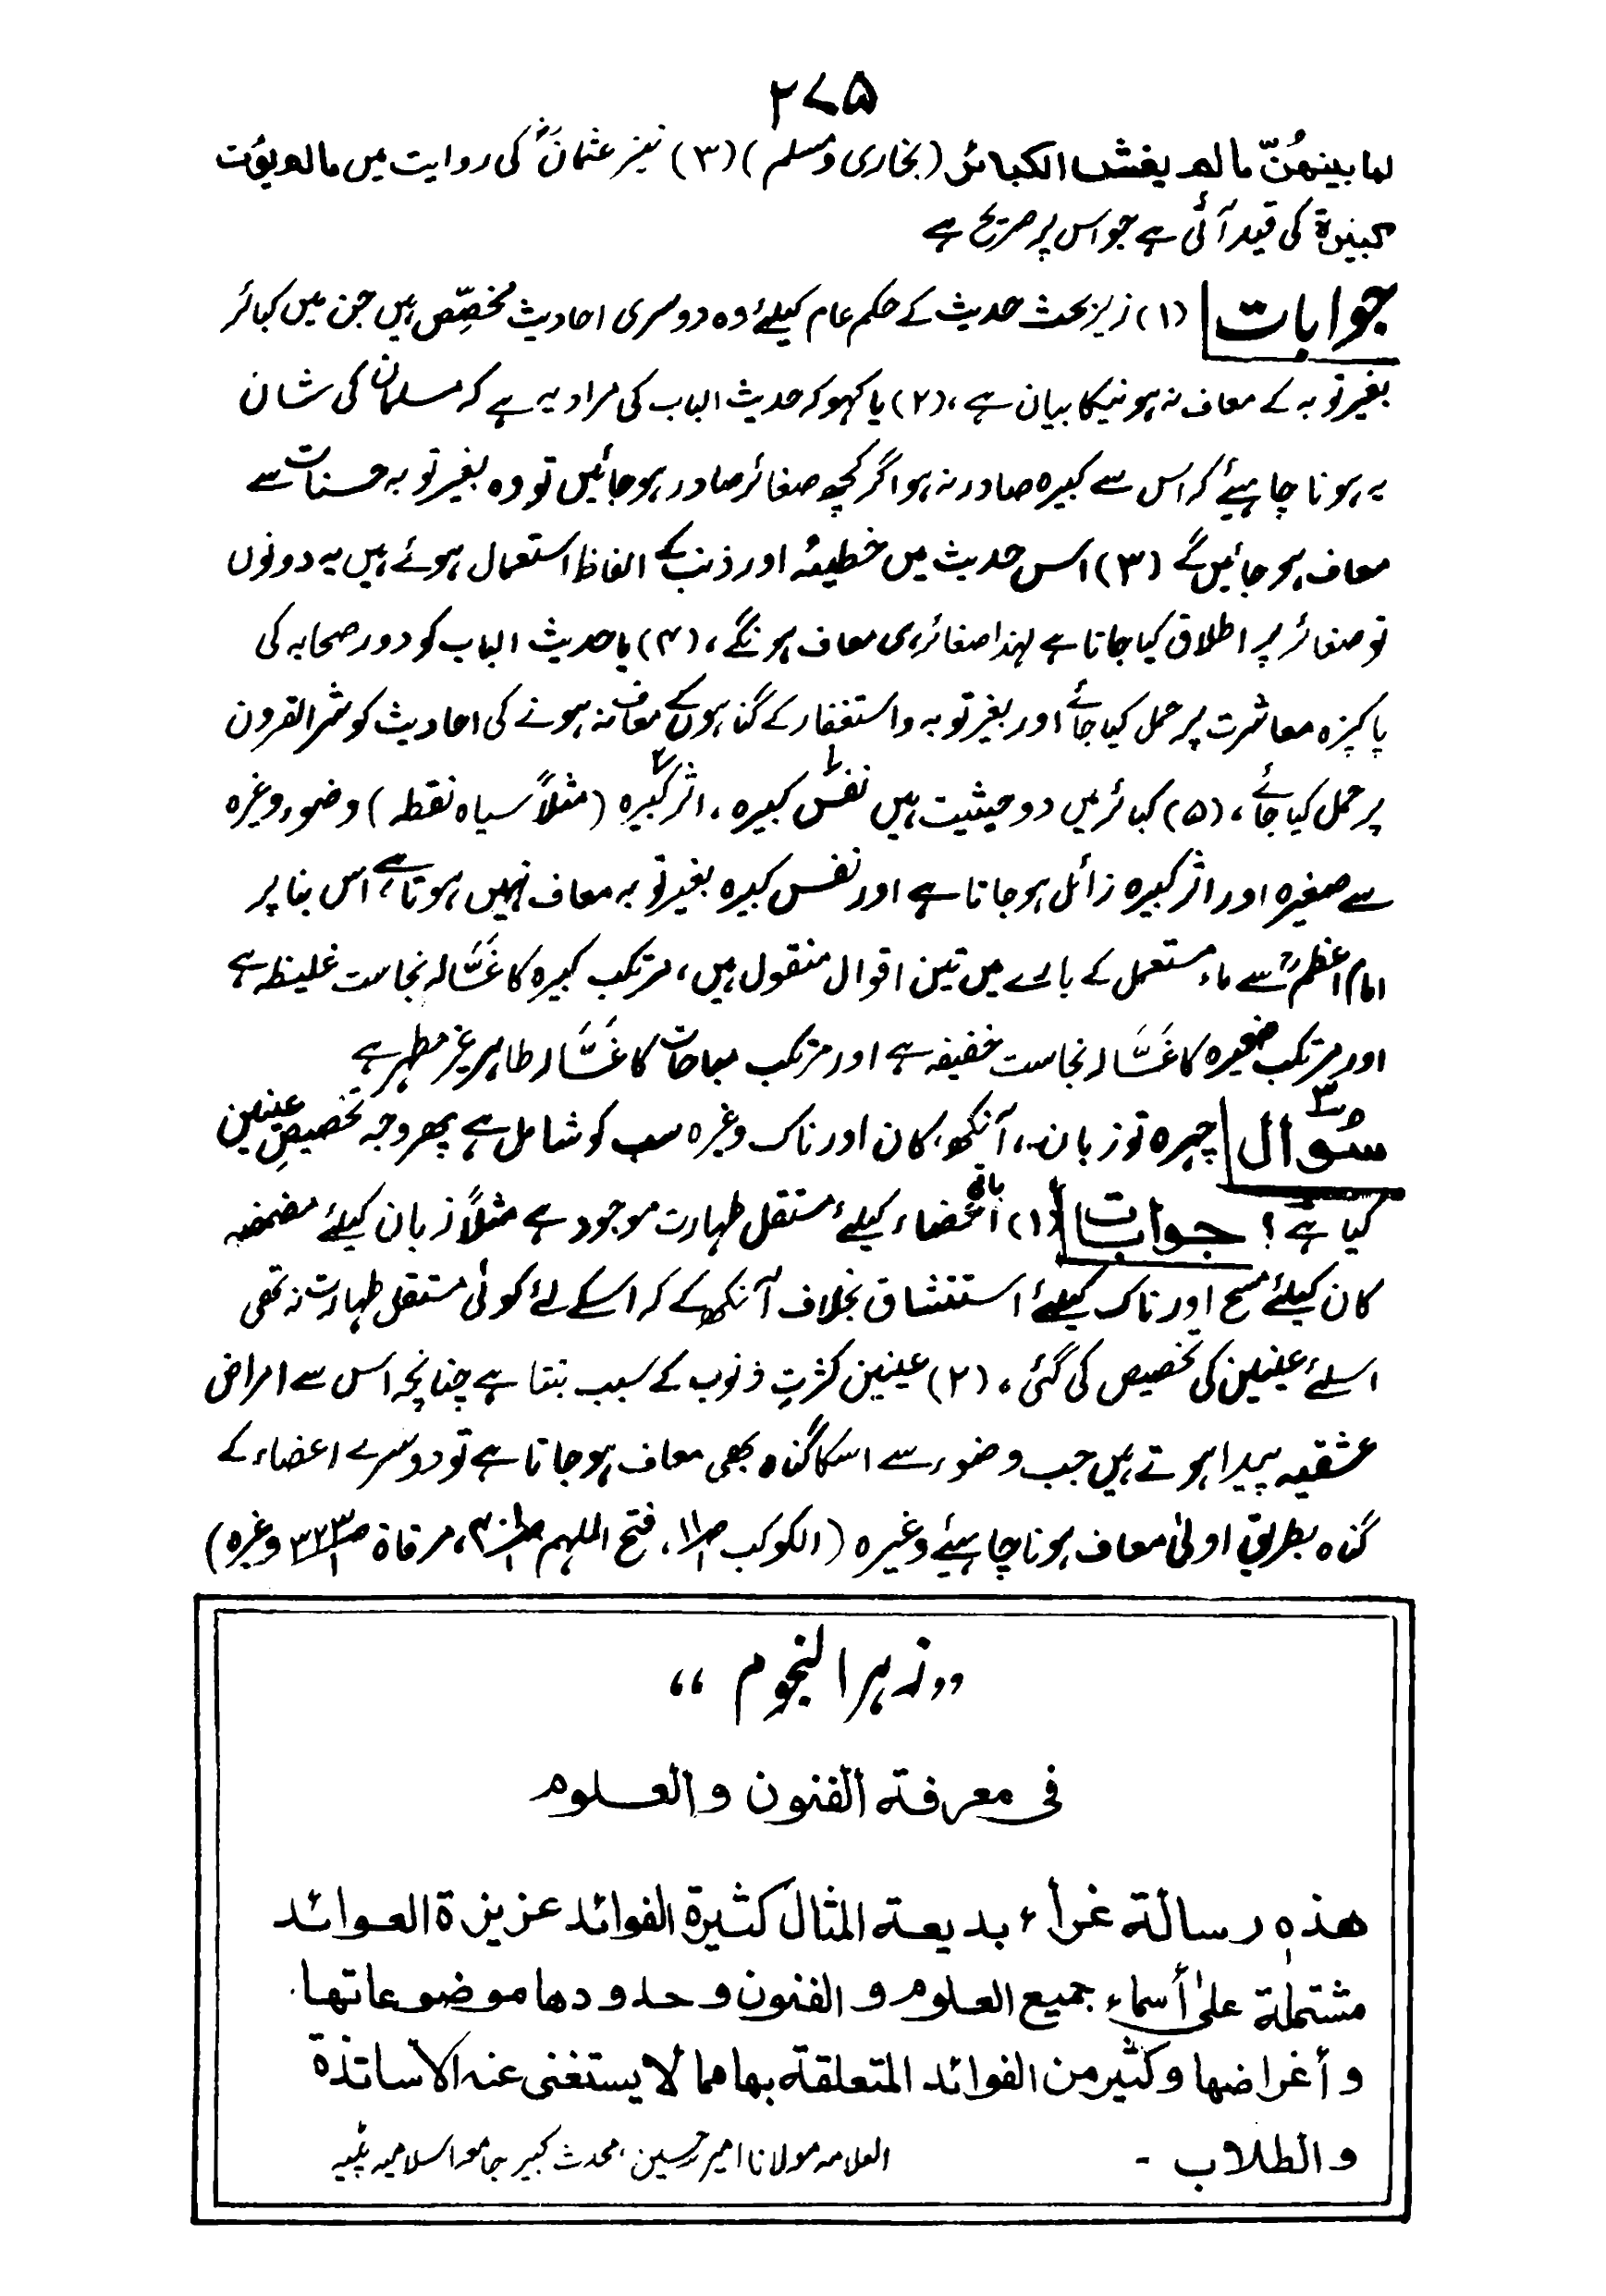 ۲۷۵
لما بینهنّ مالم یغش الکبائر (بخاری ومسلم) (۳) نیز عثمانؓ کی روایت میں مالم یؤت
کبیرۃ کی قید آئی ہے جو اس پر صریح ہے
جوابات (۱) زیر بحث حدیث کے حکم عام کیلئے وہ دوسری احادیث مخصّص ہیں جن میں کبائر
بغیر توبہ کے معاف نہ ہونیکا بیان ہے، (۲) یا کہو کہ حدیث الباب کی مراد یہ ہے کہ مسلمان کی شان
یہ ہونا چاہیئے کہ اس سے کبیرہ صادر نہ ہو اگر کچھ صغائر صادر ہو جائیں تو وہ بغیر توبہ حسنات سے
معاف ہو جائیں گے (۳) اس حدیث میں خطیئہ اور ذنب کے الفاظ استعمال ہوئے ہیں یہ دونوں
تو صغائر پر اطلاق کیا جاتا ہے لہذا صغائر ہی معاف ہونگے، (۴) یا حدیث الباب کو دور صحابہ کی
پاکیزہ معاشرت پر حمل کیا جائے اور بغیر توبہ واستغفار کے گناہوں کے معاف نہ ہونے کی احادیث کو شر القرون
پر حمل کیا جائے، (۵) کبائر میں دو حیثیت ہیں نفس کبیرہ، اثر کبیرہ (مثلاً سیاہ نقطہ) وضوء وغیرہ
سے صغیرہ اور اثر کبیرہ زائل ہو جاتا ہے اور نفس کبیرہ بغیر توبہ معاف نہیں ہوتا ہے، اس بنا پر
امام اعظمؒ سے ماء مستعمل کے بارے میں تین اقوال منقول ہیں، مرتکب کبیرہ کا غَسَّالہ نجاست غلیظہ ہے
اور مرتکب صغیرہ کا غَسَّالہ نجاست خفیفہ ہے اور مرتکب مباحات کا غَسَّالہ طاہر غیر مطہر ہے
سُوال ۳ چہرہ تو زبان، آنکھ، کان اور ناک وغیرہ سب کو شامل ہے پھر وجہ تخصیصِ عینین
کیا ہے؟ جوابات (۱) باقی اعضاء کیلئے مستقل طہارت موجود ہے مثلاً زبان کیلئے مضمضہ
کان کیلئے مسح اور ناک کیلئے استنشاق بخلاف آنکھ کے کہ اسکے لئے کوئی مستقل طہارت نہ تھی
اسلئے عینین کی تخصیص کی گئی، (۲) عینین کثرتِ ذنوب کے سبب بنتا ہے چنانچہ اس سے امراض
عشقیہ پیدا ہوتے ہیں جب وضوء سے اسکا گناہ بھی معاف ہو جاتا ہے تو دوسرے اعضاء کے
گناہ بطریق اولیٰ معاف ہونا چاہیئے وغیرہ (الکوکب، فتح الملہم، مرقاۃ وغیرہ)
،،زہر النجوم ،،
فی معرفة الفنون والعلوم
هذه رسالة غراء بدیعة المثال کثیرة الفوائد عزیزة العوائد
مشتملة علیٰ أسماء جمیع العلوم والفنون وحدودها موضوعاتها
وأغراضها وکثیر من الفوائد المتعلقة بها مما لا یستغنی عنه الاساتذة
والطلاب - العلامہ مولانا امیر حسین، محدث کبیر جامعہ اسلامیہ پٹیہ